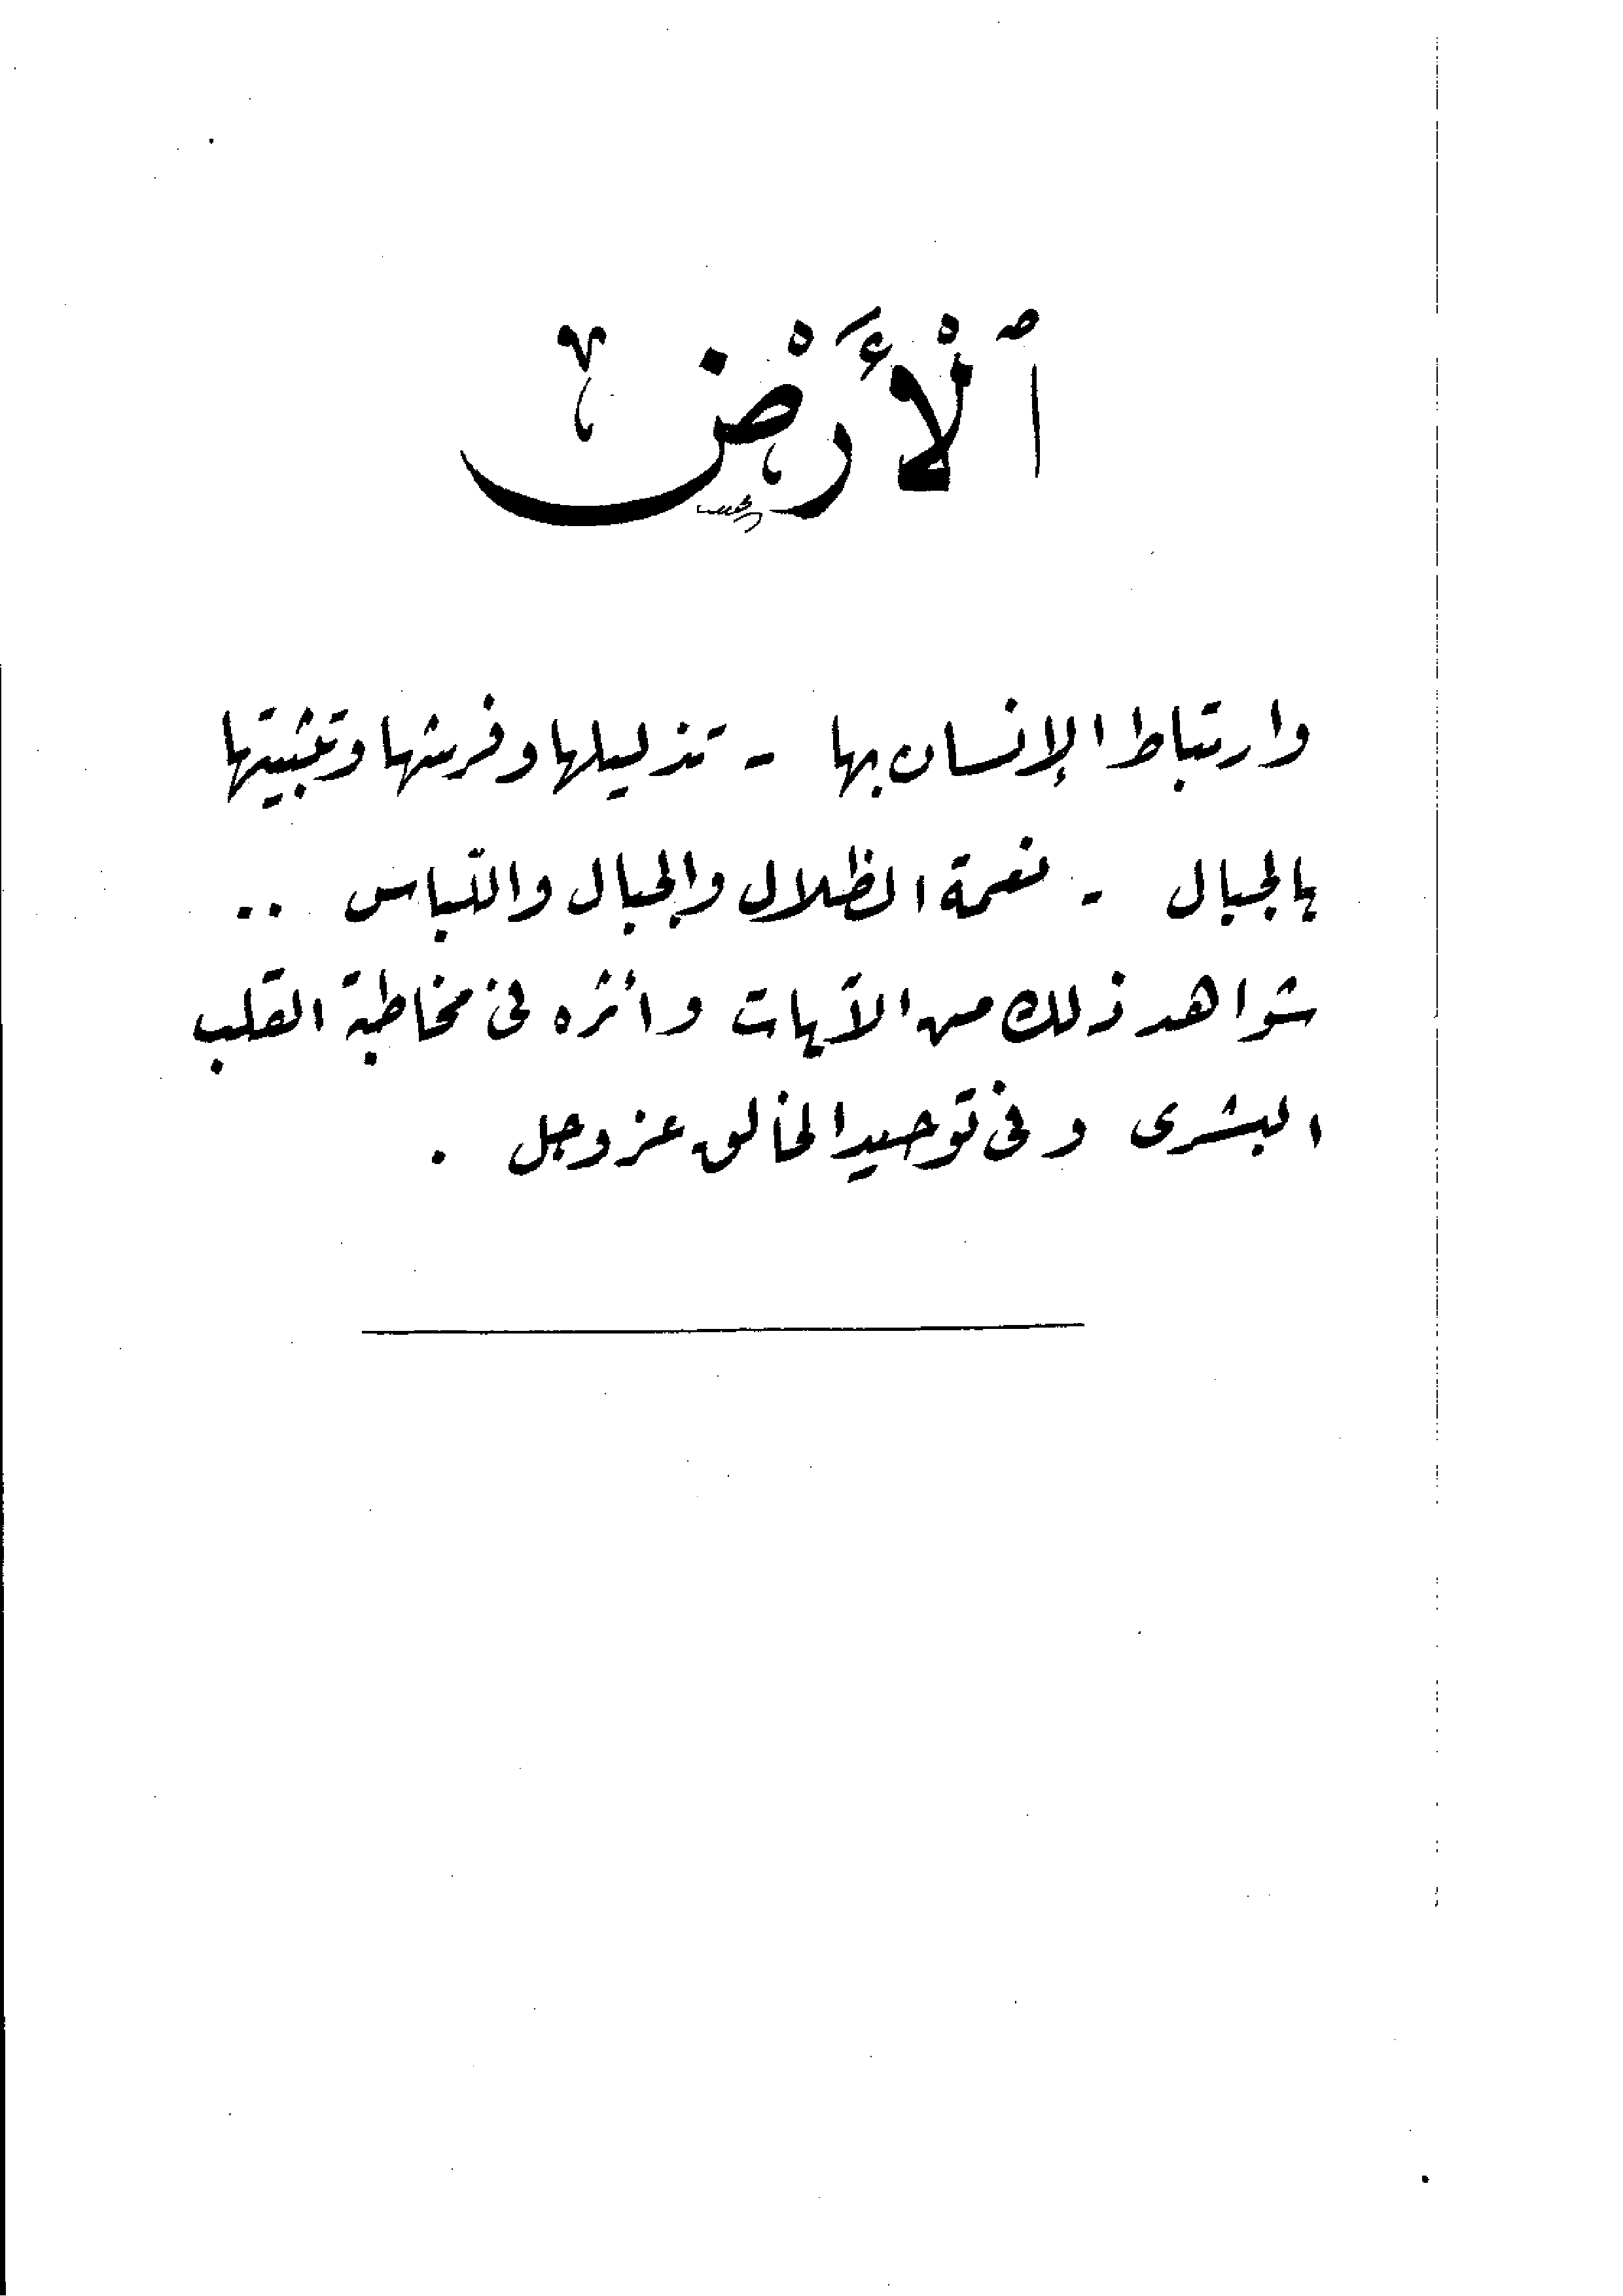 ٱلْأَرْض
وارتباط الإنسان بها - تذليلها وفرشها وتثبيتها
بالجبال - نعمة الظلال والجبال واللّباس ..
شواهد ذلك من الآيات وأثره فى مخاطبة القلب
البشرى وفى توحيد الخالق عز وجل .